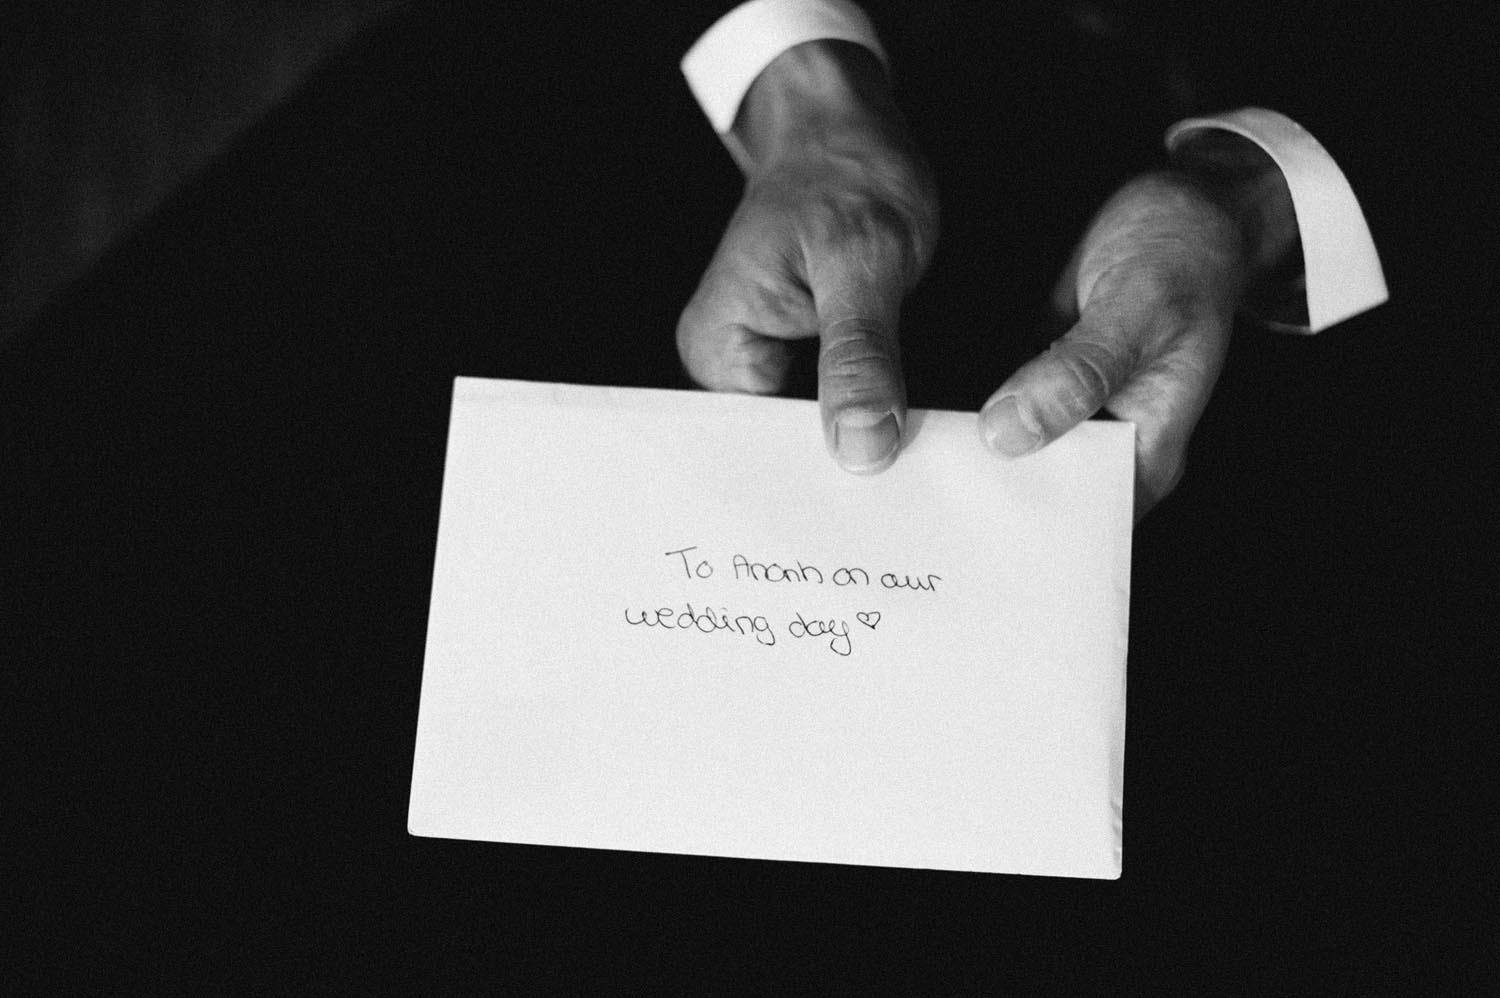 To Ananh on our
wedding day ♡